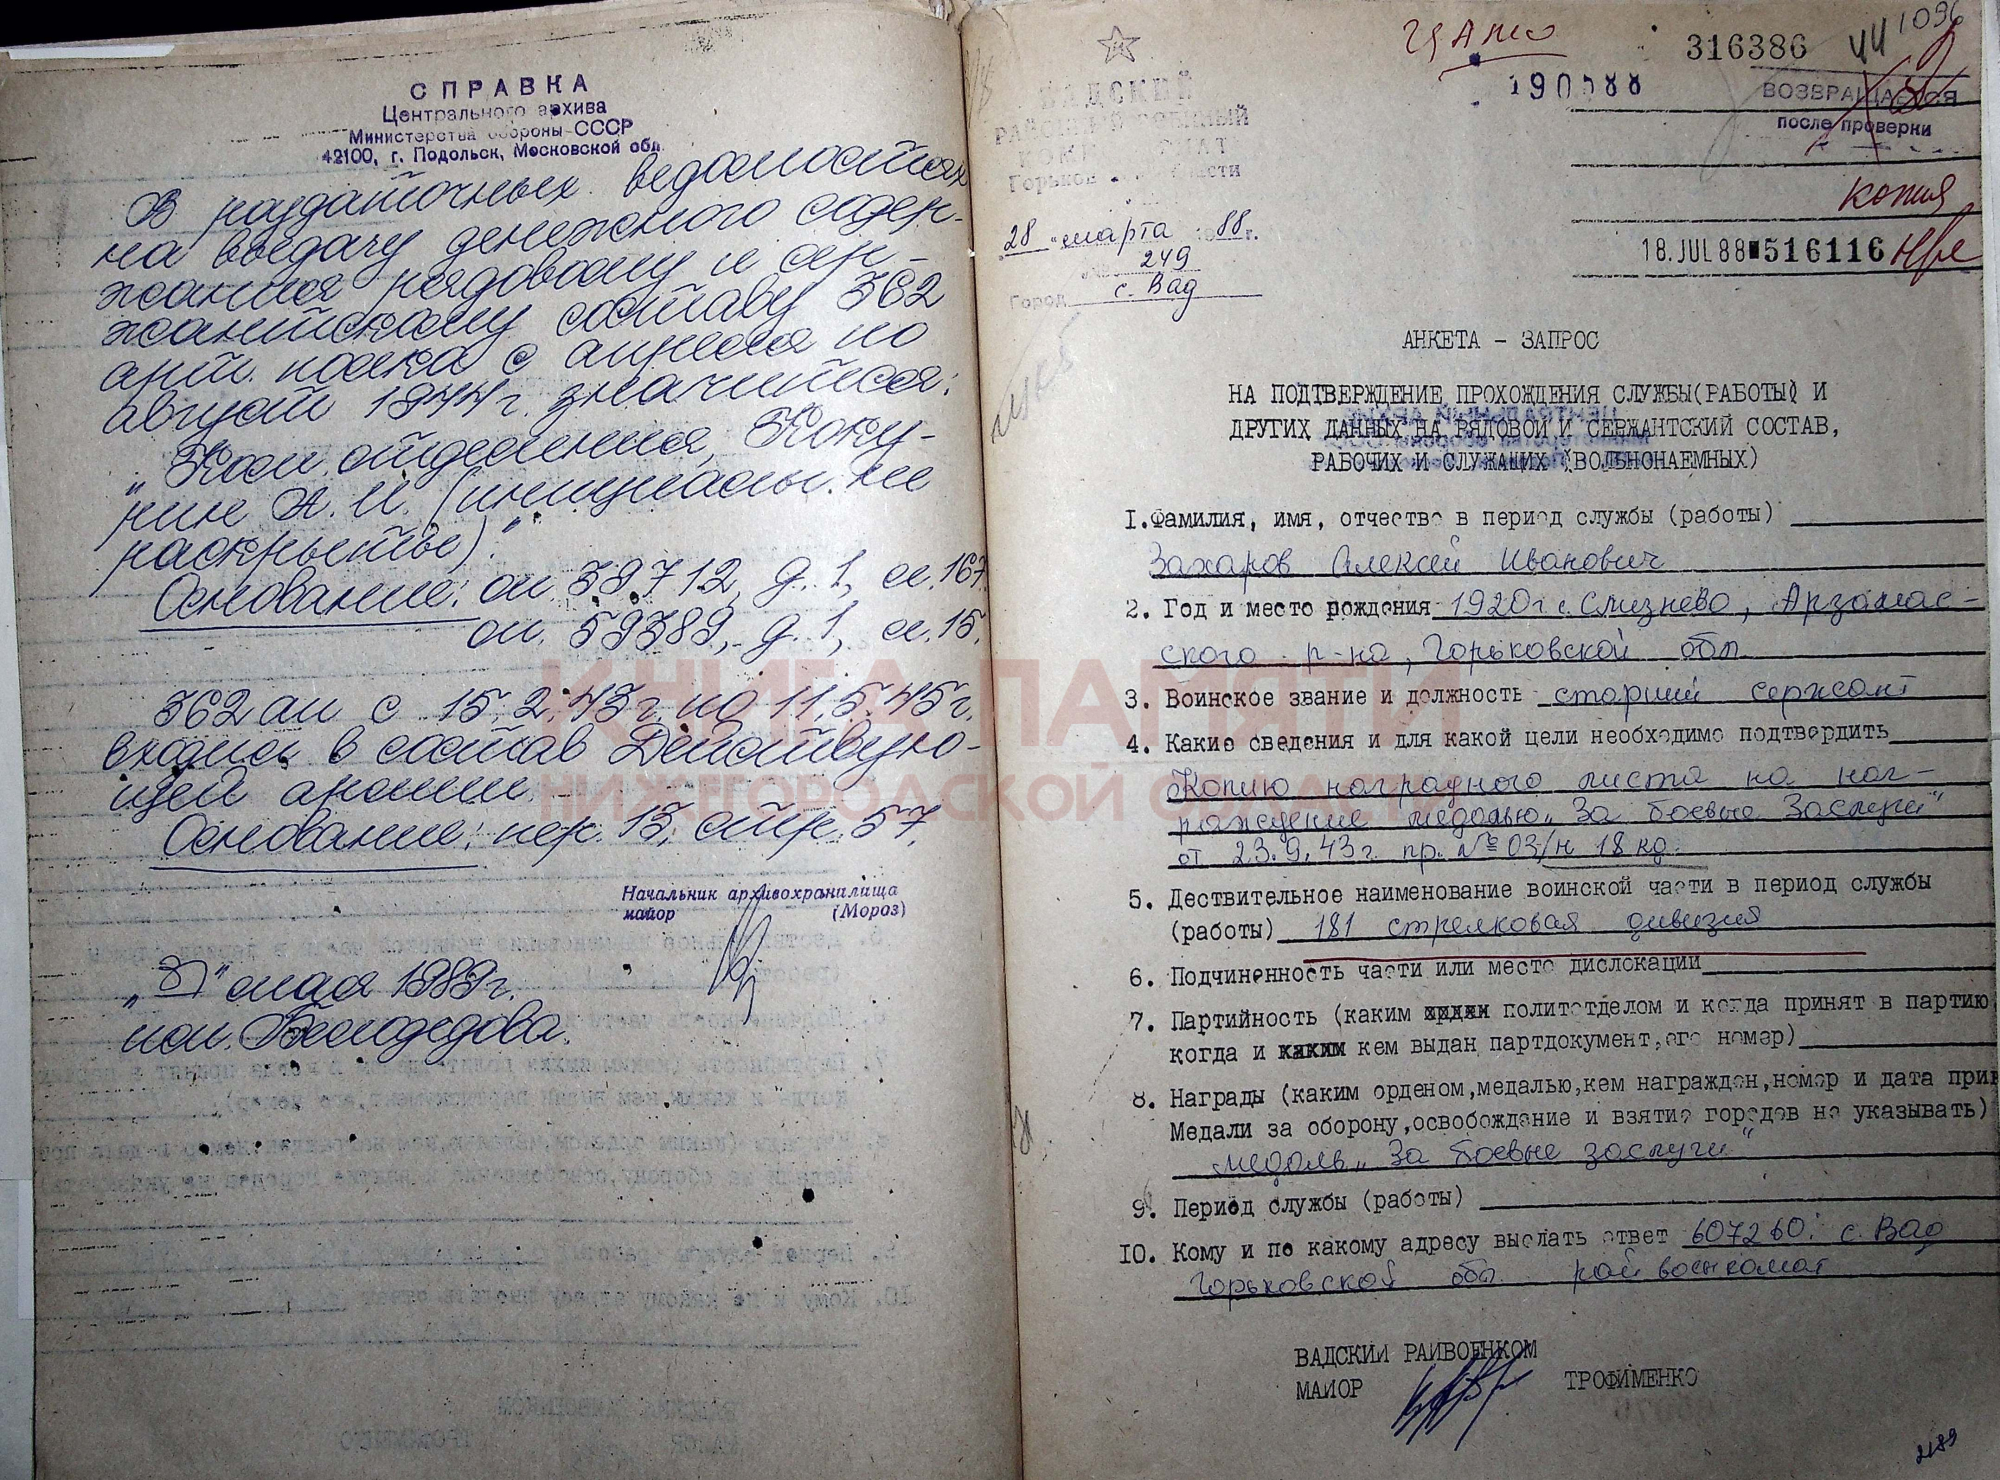 СПРАВКА
Центрального архива
Министерства обороны СССР
42100, г. Подольск, Московской обл.
В раздаточных ведомостях
на выдачу денежного содер-
жания рядовому и сер-
жантскому составу 362
арт. полка с апреля по
август 1944 г. значится:
„Ком. отделения, Коку-
рин А. И. (инициалы не
раскрыты)."
Основание: оп. 39712, д. 1, л. 167.
оп. 59389, д. 1, л. 15.
362 ап с 15.2.43 г. по 11.5.45 г.
входил в состав Действую-
щей армии.
Основание: пер. 13, стр. 57.
Начальник архивохранилища
майор (Мороз)
„31" мая 1989 г.
исп. Белодедова.
ЦАМО
316386
190588
ВОЗВРАЩАЕТСЯ
после проверки
копия
18. JUL 88 516116
ВАДСКИЙ
РАЙОННЫЙ ВОЕННЫЙ
КОМИССАРИАТ
Горьковской области
28 „марта 1988 г.
№ 249
Город с. Вад
АНКЕТА - ЗАПРОС
НА ПОДТВЕРЖДЕНИЕ ПРОХОЖДЕНИЯ СЛУЖБЫ(РАБОТЫ) И
ДРУГИХ ДАННЫХ НА РЯДОВОЙ И СЕРЖАНТСКИЙ СОСТАВ,
РАБОЧИХ И СЛУЖАЩИХ (ВОЛЬНОНАЕМНЫХ)
1. Фамилия, имя, отчество в период службы (работы)
Захаров Алексей Иванович
2. Год и место рождения 1920 г. с. Слизнево, Арзамас-
ского р-на, Горьковской обл
3. Воинское звание и должность старший сержант
4. Какие сведения и для какой цели необходимо подтвердить
Копию наградного листа на наг-
раждение медалью „За боевые заслуги"
от 23.9.43 г. пр. № 03/н 18 кд.
5. Дествительное наименование воинской части в период службы
(работы) 181 стрелковая дивизия
6. Подчиненность части или место дислокации
7. Партийность (каким политотделом и когда принят в партию
когда и кем выдан партдокумент, его номер)
8. Награды (каким орденом, медалью, кем награжден, номер и дата прик
Медали за оборону, освобождение и взятие городов не указывать)
медаль „За боевые заслуги"
9. Период службы (работы)
10. Кому и по какому адресу выслать ответ 607260: с. Вад
Горьковской обл. райвоенкомат
ВАДСКИЙ РАЙВОЕНКОМ
МАЙОР ТРОФИМЕНКО
КНИГА ПАМЯТИ
НИЖЕГОРОДСКОЙ ОБЛАСТИ